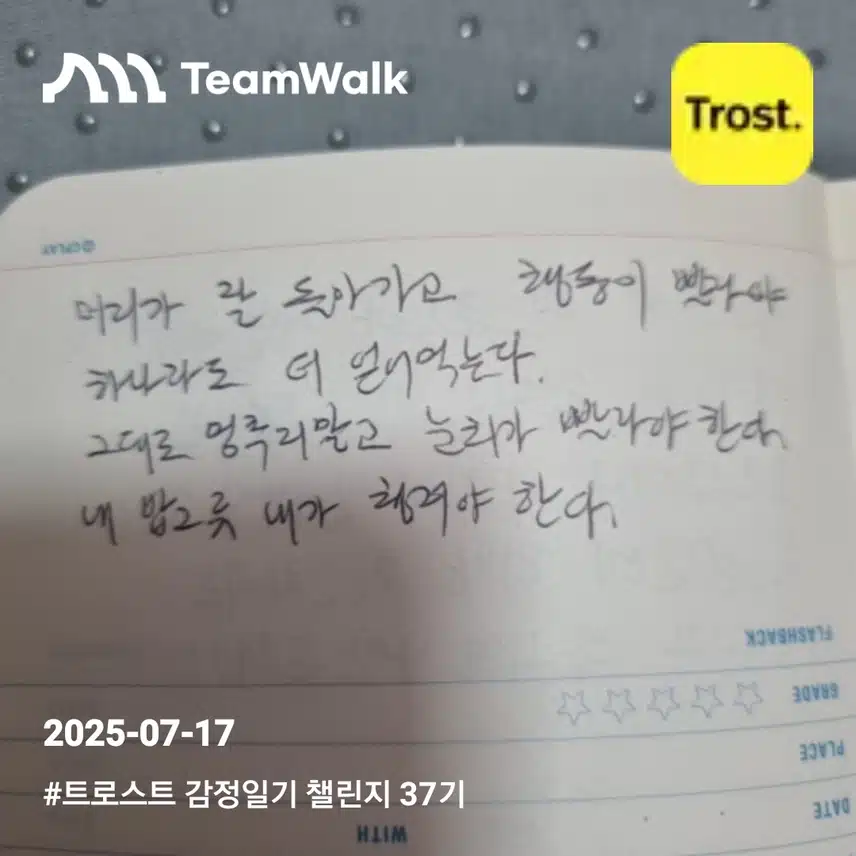 TeamWalk
Trost.
CPLAY
머리가 잘 돌아가고 행동이 빨라야
하나라도 더 얻어먹는다.
그대로 멍루리말고 눈치가 빨라야한다.
내 밥그릇 내가 챙겨야 한다.
FLASHBACK
GRADE
PLACE
DATE
WITH
2025-07-17
#트로스트 감정일기 챌린지 37기